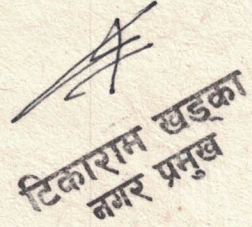 टिकाराम खड्का
नगर प्रमुख